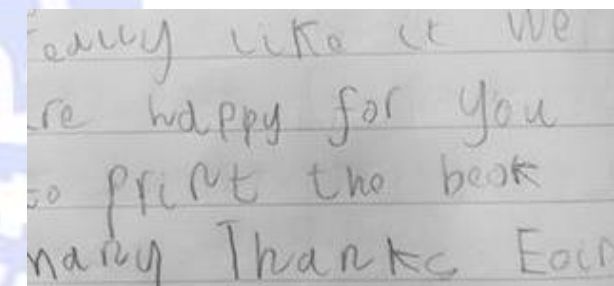 eally like it we
re happy for you
to print the book
many Thanks Eoin